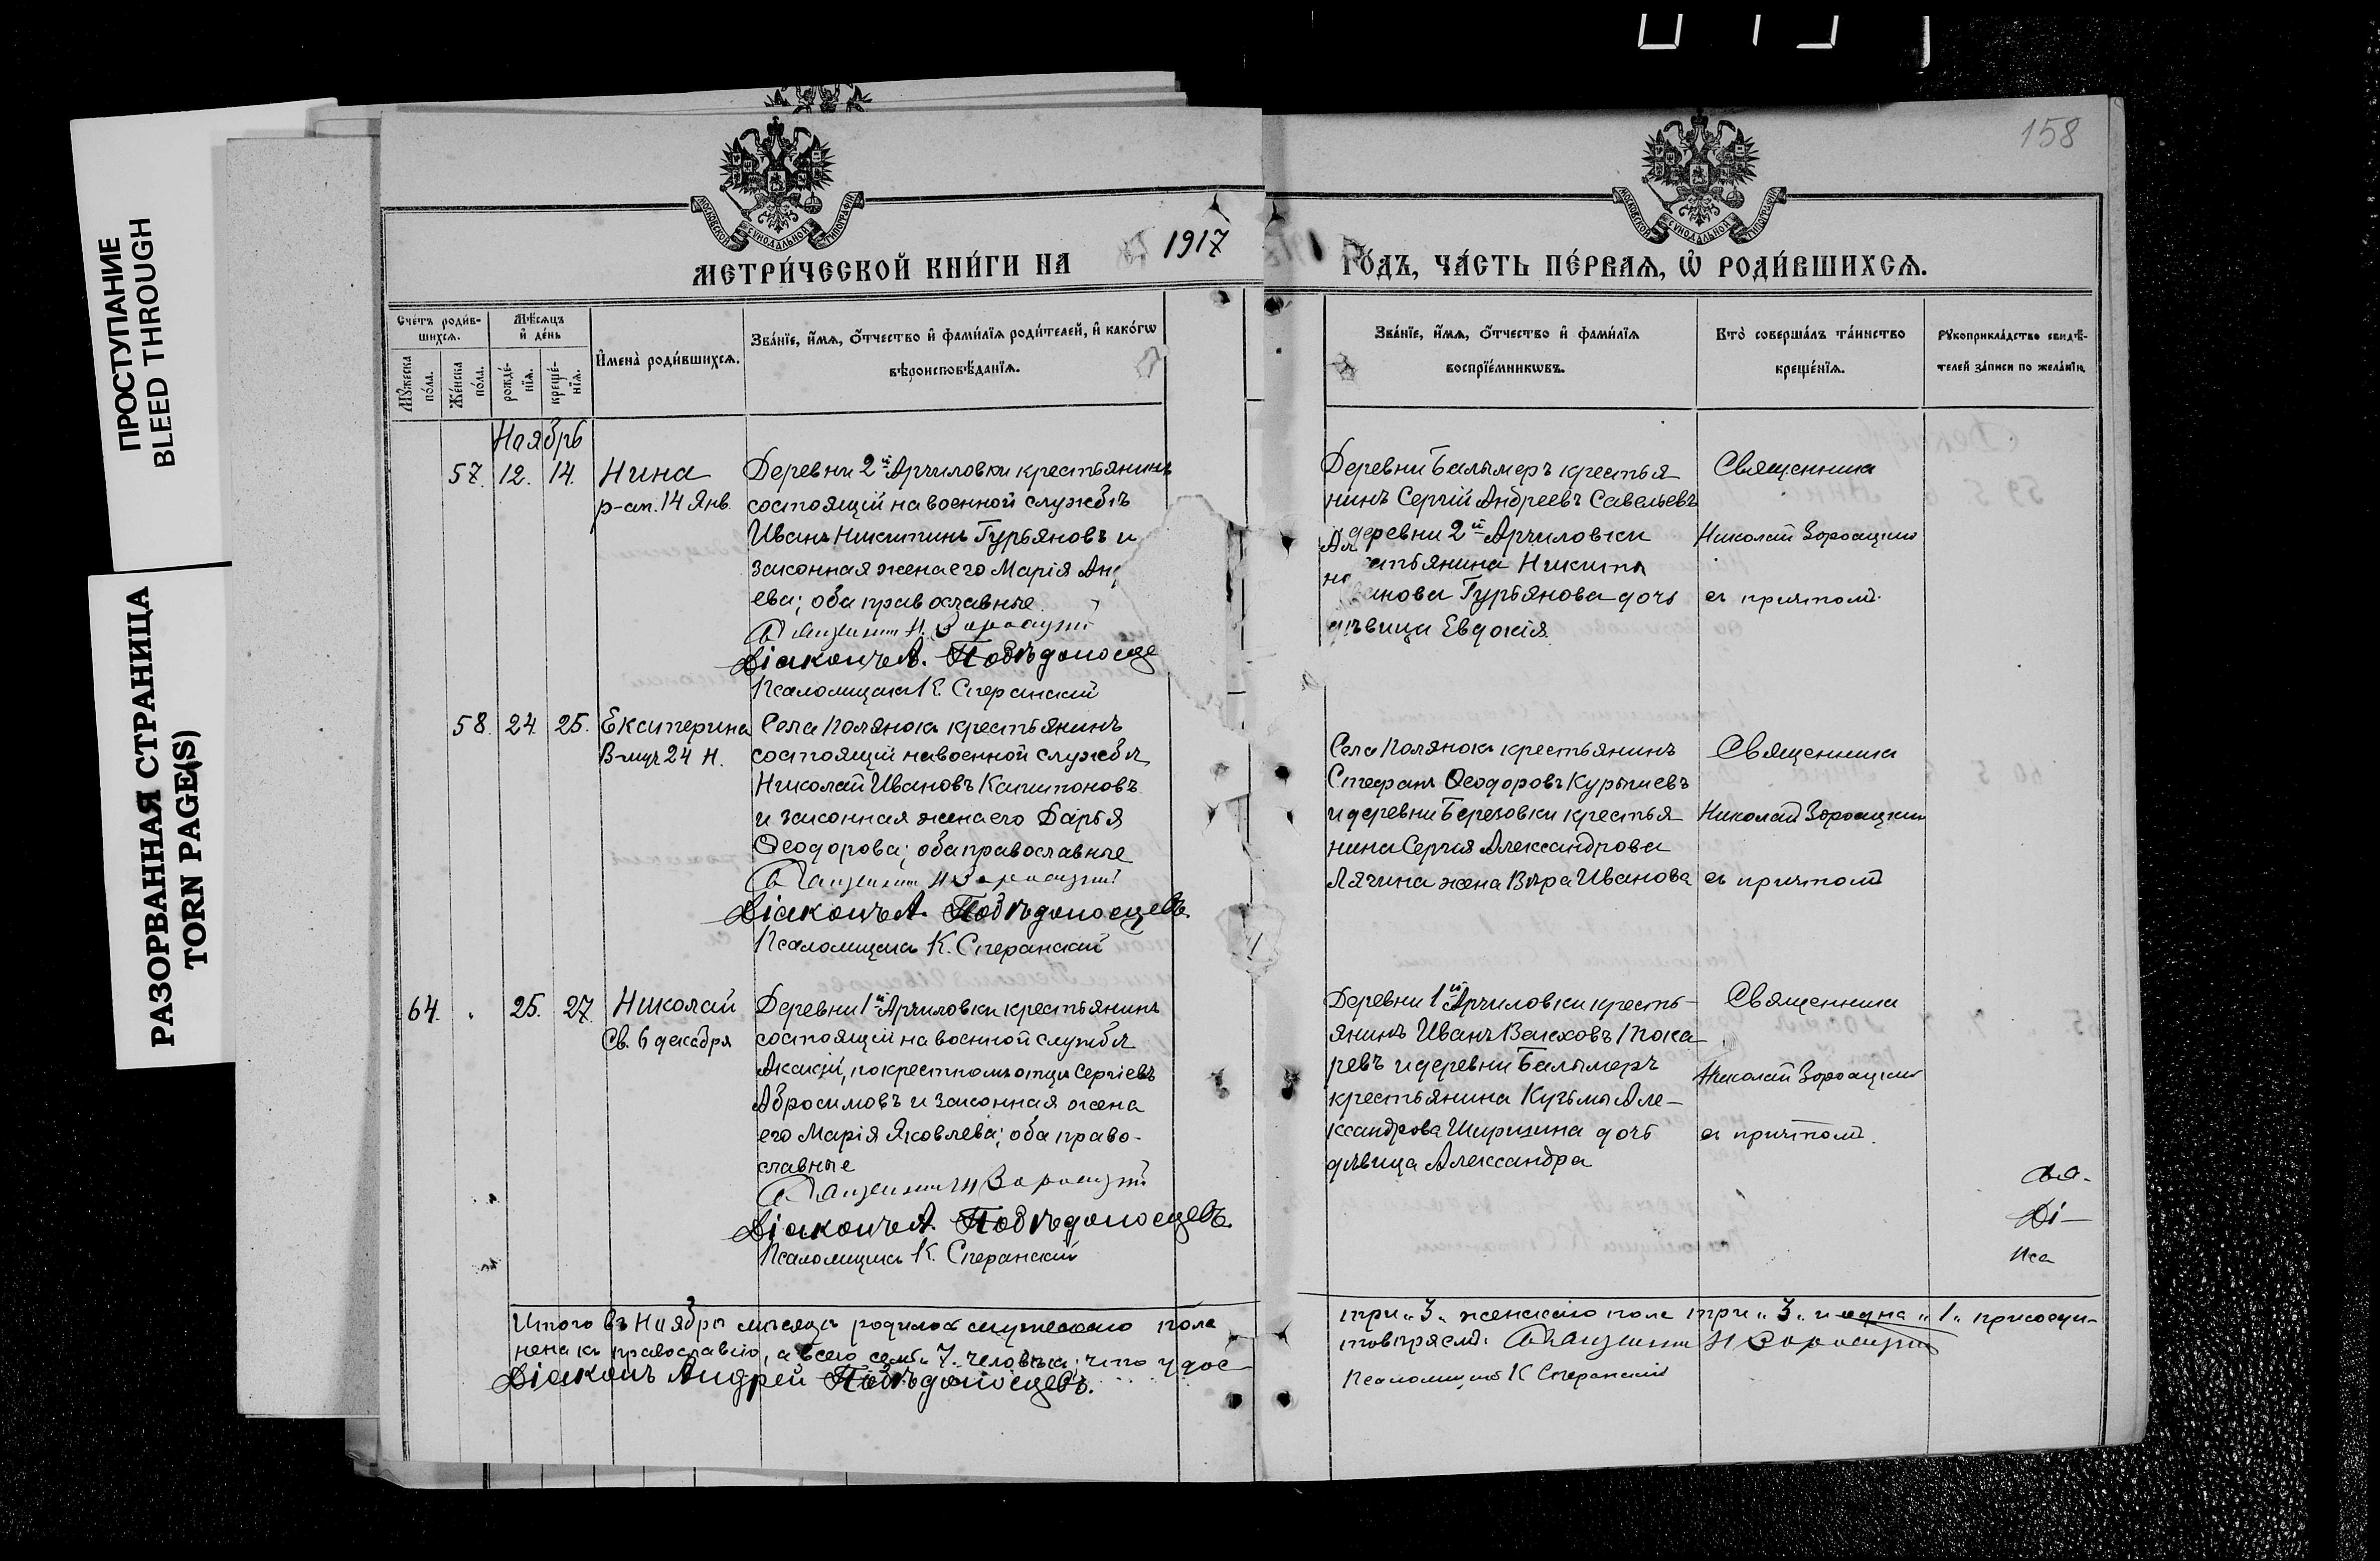 ПРОСТУПАНИЕ
BLEED THROUGH
РАЗОРВАННАЯ СТРАНИЦА
TORN PAGE(S)
158
МОСКОВСКОЙ СѴНОДАЛЬНОЙ ТИПОГРАФІИ
МОСКОВСКОЙ СѴНОДАЛЬНОЙ ТИПОГРАФІИ
МЕТРИ́ЧЕСКОЙ КНИ́ГИ НА 1917 ГО́ДЪ, ЧА́СТЬ ПЕ́РВАЯ, Ѡ҆ РОДИ́ВШИХСЯ.
Сче́тъ роди́в-
шихся.
Мꙋ́жеска по́ла.
Же́нска по́ла.
Мѣ́сяцъ и҆ де́нь
рожде́-нїя.
креще́-нїя.
И҆мена̀ роди́вшихся.
Зва́нїе, и҆́мя, о҆́тчество и҆ фами́лїя роди́телей, и҆ како́гѡ
вѣроисповѣ́данїя.
Зва́нїе, и҆́мя, о҆́тчество и҆ фами́лїя
воспрїе́мникѡвъ.
Кто̀ соверша́лъ та́инство
креще́нїя.
Рꙋкоприкла́дство свидѣ́-
телей за́писи по жела́нїю.
Ноябрь
57. 12. 14. Нина
р-ап. 14 Янв.
Деревни 2й Арчиловки крестьянинъ
состоящій на военной службѣ
Иванъ Никитинъ Гурьяновъ и
законная жена его Марія Ан
ева; оба православные.
Діаконъ А. Побѣдоносце
Псаломщикъ К. Сперанскій
Деревни Балымеръ крестья-
нинъ Сергій Андреевъ Савельевъ
деревни 2й Арчиловки
стьянина Никиты
анова Гурьянова дочь
дѣвица Евдокія.
Священникъ
Николай
съ причтомъ.
58. 24. 25. Екатерина
В-муч. 24 Н.
Села Полянокъ крестьянинъ
состоящій на военной службѣ
Николай Ивановъ Капитоновъ
и законная жена его Дарья
Ѳеодорова; оба православные
Діаконъ А. Побѣдоносцевъ.
Псаломщикъ К. Сперанскій
Села Полянокъ крестьянинъ
Стефанъ Ѳеодоровъ
и деревни Березовки крестья-
нина Сергія Александрова
Лячина жена Вѣра Иванова
Священникъ
Николай
съ причтомъ
64. 25. 27. Николай
Св. 6 декабря
Деревни 1й Арчиловки крестьянинъ
состоящій на военной службѣ
Акакій, по крестномъ отцѣ Сергіевъ
Абросимовъ и законная жена
его Марія Яковлева; оба право-
славные
Діаконъ А. Побѣдоносцевъ.
Псаломщикъ К. Сперанскій
Деревни 1й Арчиловки кресть-
янинъ Иванъ Тока-
ревъ и деревни Балымеръ
крестьянина Кузьмы Але-
ксандрова дочь
дѣвица Александра
Священникъ
Николай
съ причтомъ.
Свя-
Ді-
Пса
Итого въ Ноябрѣ мѣсяцѣ родилось мужескаго пола три „3„ женскаго пола три „3„ и одна „1„ присоеди-
нена къ православію, а всего семь „7„ человѣкъ; что удос-
товѣряемъ.
Діаконъ Андрей Побѣдоносцевъ.
Псаломщикъ К Сперанскій